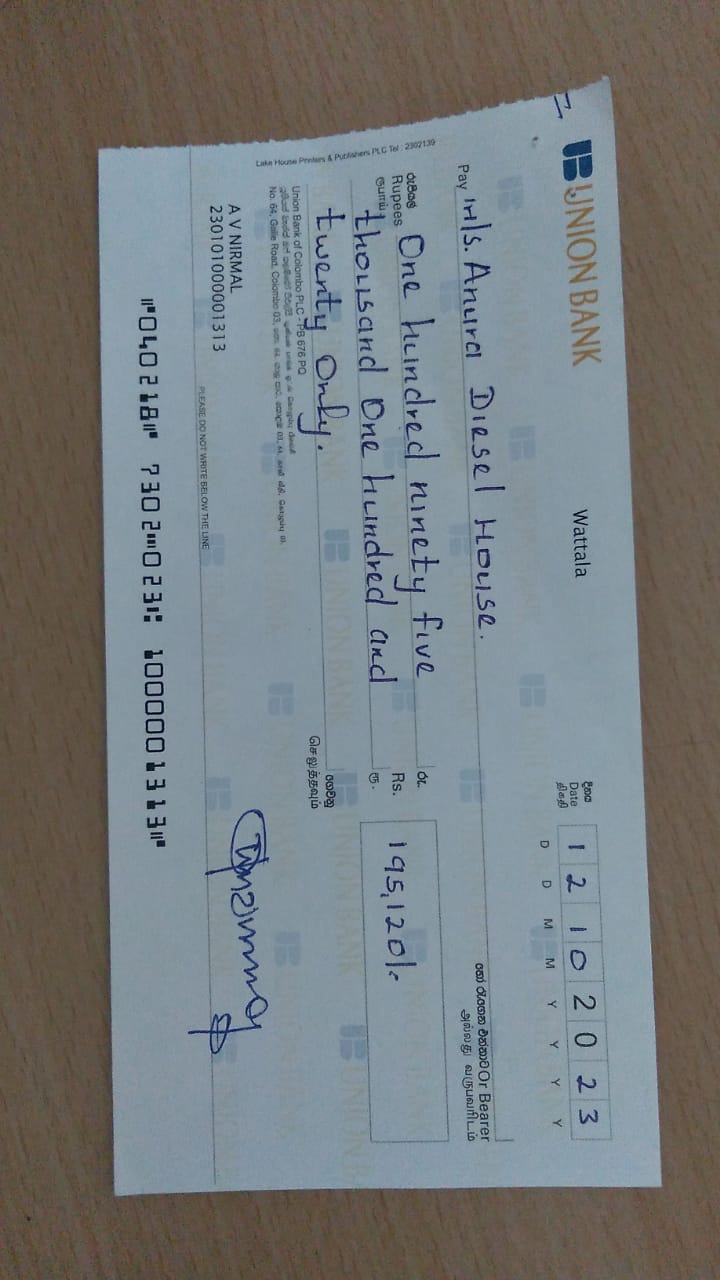 UNION BANK
Wattala
දිනය
Date
திகதி
12 10 2023
D D M M Y Y Y Y
Pay M/s. Anura Diesel House.
හෝ රැගෙන එන්නාට Or Bearer
அல்லது வருபவரிடம்
රුපියල්
Rupees
ரூபாய்
One hundred ninety five
thousand One hundred and
twenty Only.
රු.
Rs.
ரூ.
195,120/-
ගෙවනු
செலுத்தவும்
Lake House Printers & Publishers PLC Tel : 2302139
Union Bank of Colombo PLC - PB 676 PQ
No. 64, Galle Road, Colombo 03,
A V NIRMAL
230101000001313
PLEASE DO NOT WRITE BELOW THE LINE
⑈040218⑈ 7302⑉023⑆ 1000001313⑈